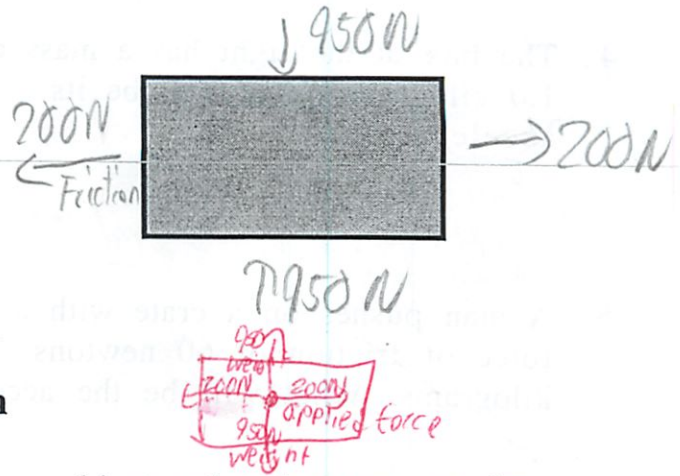 ↓ 950N
200N
← Friction
→ 200N
↑ 950 N
950
weight
200N 200N
applied force
950N
weight